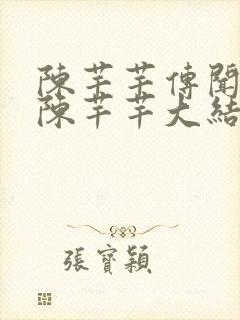 陳芊芊傳聞
陳芊芊大結
張寶穎